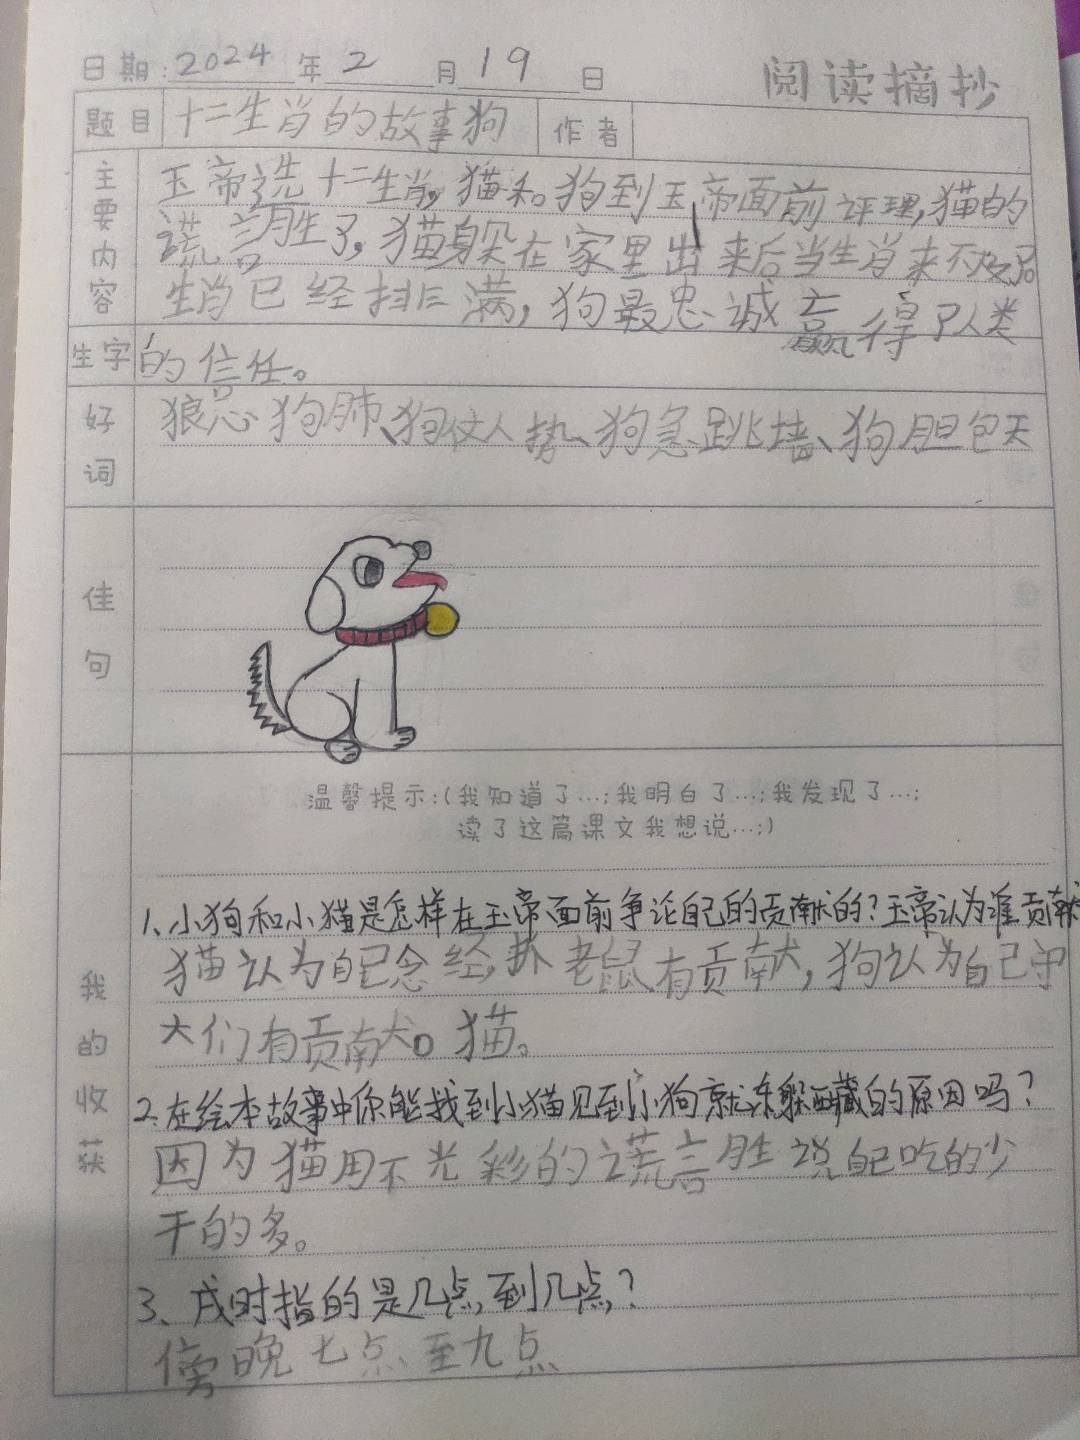 日期:2024年2月19日
阅读摘抄
题目 十二生肖的故事狗 作者
主要内容
玉帝选十二生肖,猫和狗到玉帝面前评理,猫的
谎言胜了,猫躲在家里出来后当生肖来不及了。
生肖已经排满,狗最忠诚赢得了人类
生字 的信任。
好词
狼心狗肺、狗仗人势、狗急跳墙、狗胆包天
佳句
温馨提示:(我知道了…;我明白了…;我发现了…;
读了这篇课文我想说…;)
我的收获
1、小狗和小猫是怎样在玉帝面前争论自己的贡献的?玉帝认为谁贡献
猫认为自己念经,扑老鼠有贡献,狗认为自己守
大们有贡献。猫。
2.在绘本故事中你能找到小猫见到小狗就东躲西藏的原因吗?
因为猫用不光彩的谎言胜说自己吃的少
干的多。
3、戌时指的是几点到几点?
傍晚七点至九点